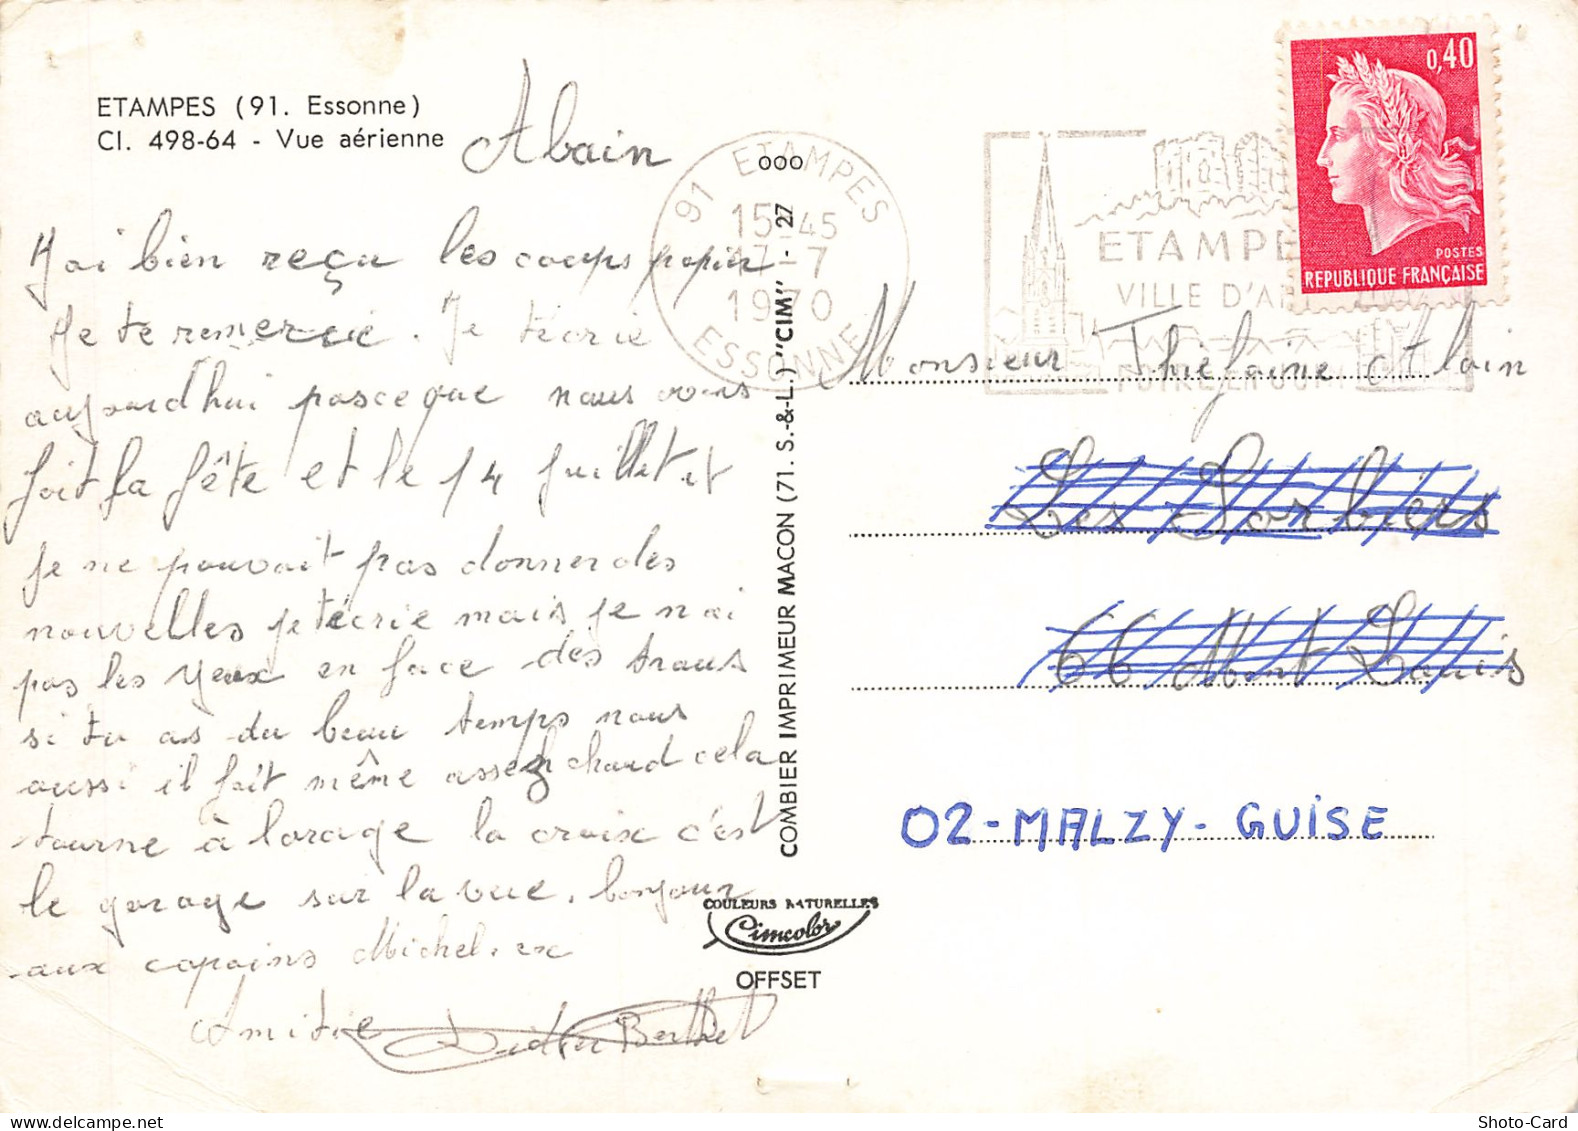 ETAMPES (91. Essonne)
Cl. 498-64 - Vue aérienne
Alain
J'ai bien reçu les coups papier
Je te remercie. Je t'écrie
aujourd'hui parceque nous avons
fait la fête et le 14 Juillet et
je ne pouvait pas donner des
nouvelles je técrie mais je n'ai
pas les yeux en face des traus
si tu as du beau temps nous
aussi il fait même assez chaud cela
tourne à l'orage la croix c'est
le garage sur la vue. bonjour
aux copains Michel.
Amitié Didier Berthet
COMBIER IMPRIMEUR MACON (71. S.-&-L.) "CIM" - 27
COULEURS NATURELLES
Cimcolor
OFFSET
ooo
91 ETAMPES
15-45
17-7
1970
ESSONNE
ETAMPE
VILLE D'A
0,40
POSTES
REPUBLIQUE FRANÇAISE
Monsieur Thiefaine Alain
Les Sorbiers
66 Mont Louis
02-MALZY-GUiSE
Shoto-Card